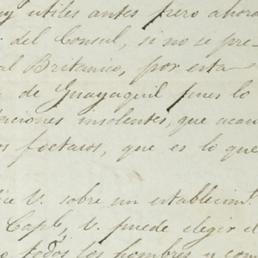 y utiles antes pero ahora
del Consul, si no se pre-
al Britanico, por esta
de Guayaquil pues lo
aciones insolentes, que acau
os foetaios, que es lo que
ice V. sobre un establecim.to
Cap.l, V. puede elegir el
todos los hombres y com